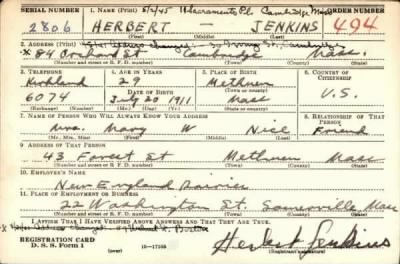 SERIAL NUMBER 1. NAME (Print) 5/2/45 Sacramento Pl. Cambridge Mass ORDER NUMBER
2806 HERBERT — JENKINS 494
(First) (Middle) (Last)
2. ADDRESS (Print)
x 84 Orchard St. Cambridge Mass.
(Number and street or R. F. D. number) (Town) (County) (State)
3. TELEPHONE 4. AGE IN YEARS 5. PLACE OF BIRTH 6. COUNTRY OF CITIZENSHIP
Kirkland 29 Methuen
DATE OF BIRTH (Town or county)
6074 July 20 1911 Mass U.S.
(Exchange) (Number) (Mo.) (Day) (Yr.) (State or country)
7. NAME OF PERSON WHO WILL ALWAYS KNOW YOUR ADDRESS 8. RELATIONSHIP OF THAT PERSON
Mrs. Mary W Nice Friend
(Mr., Mrs., Miss) (First) (Middle) (Last)
9. ADDRESS OF THAT PERSON
43 Forest St Methuen Mass
(Number and street or R. F. D. number) (Town) (County) (State)
10. EMPLOYER'S NAME
New England
11. PLACE OF EMPLOYMENT OR BUSINESS
22 Washington St. Somerville Mass
(Number and street or R. F. D. number) (Town) (County) (State)
I AFFIRM THAT I HAVE VERIFIED ABOVE ANSWERS AND THAT THEY ARE TRUE.
x Address Changed Boston
REGISTRATION CARD
D. S. S. Form 1 (over) 16—17105 Herbert Jenkins